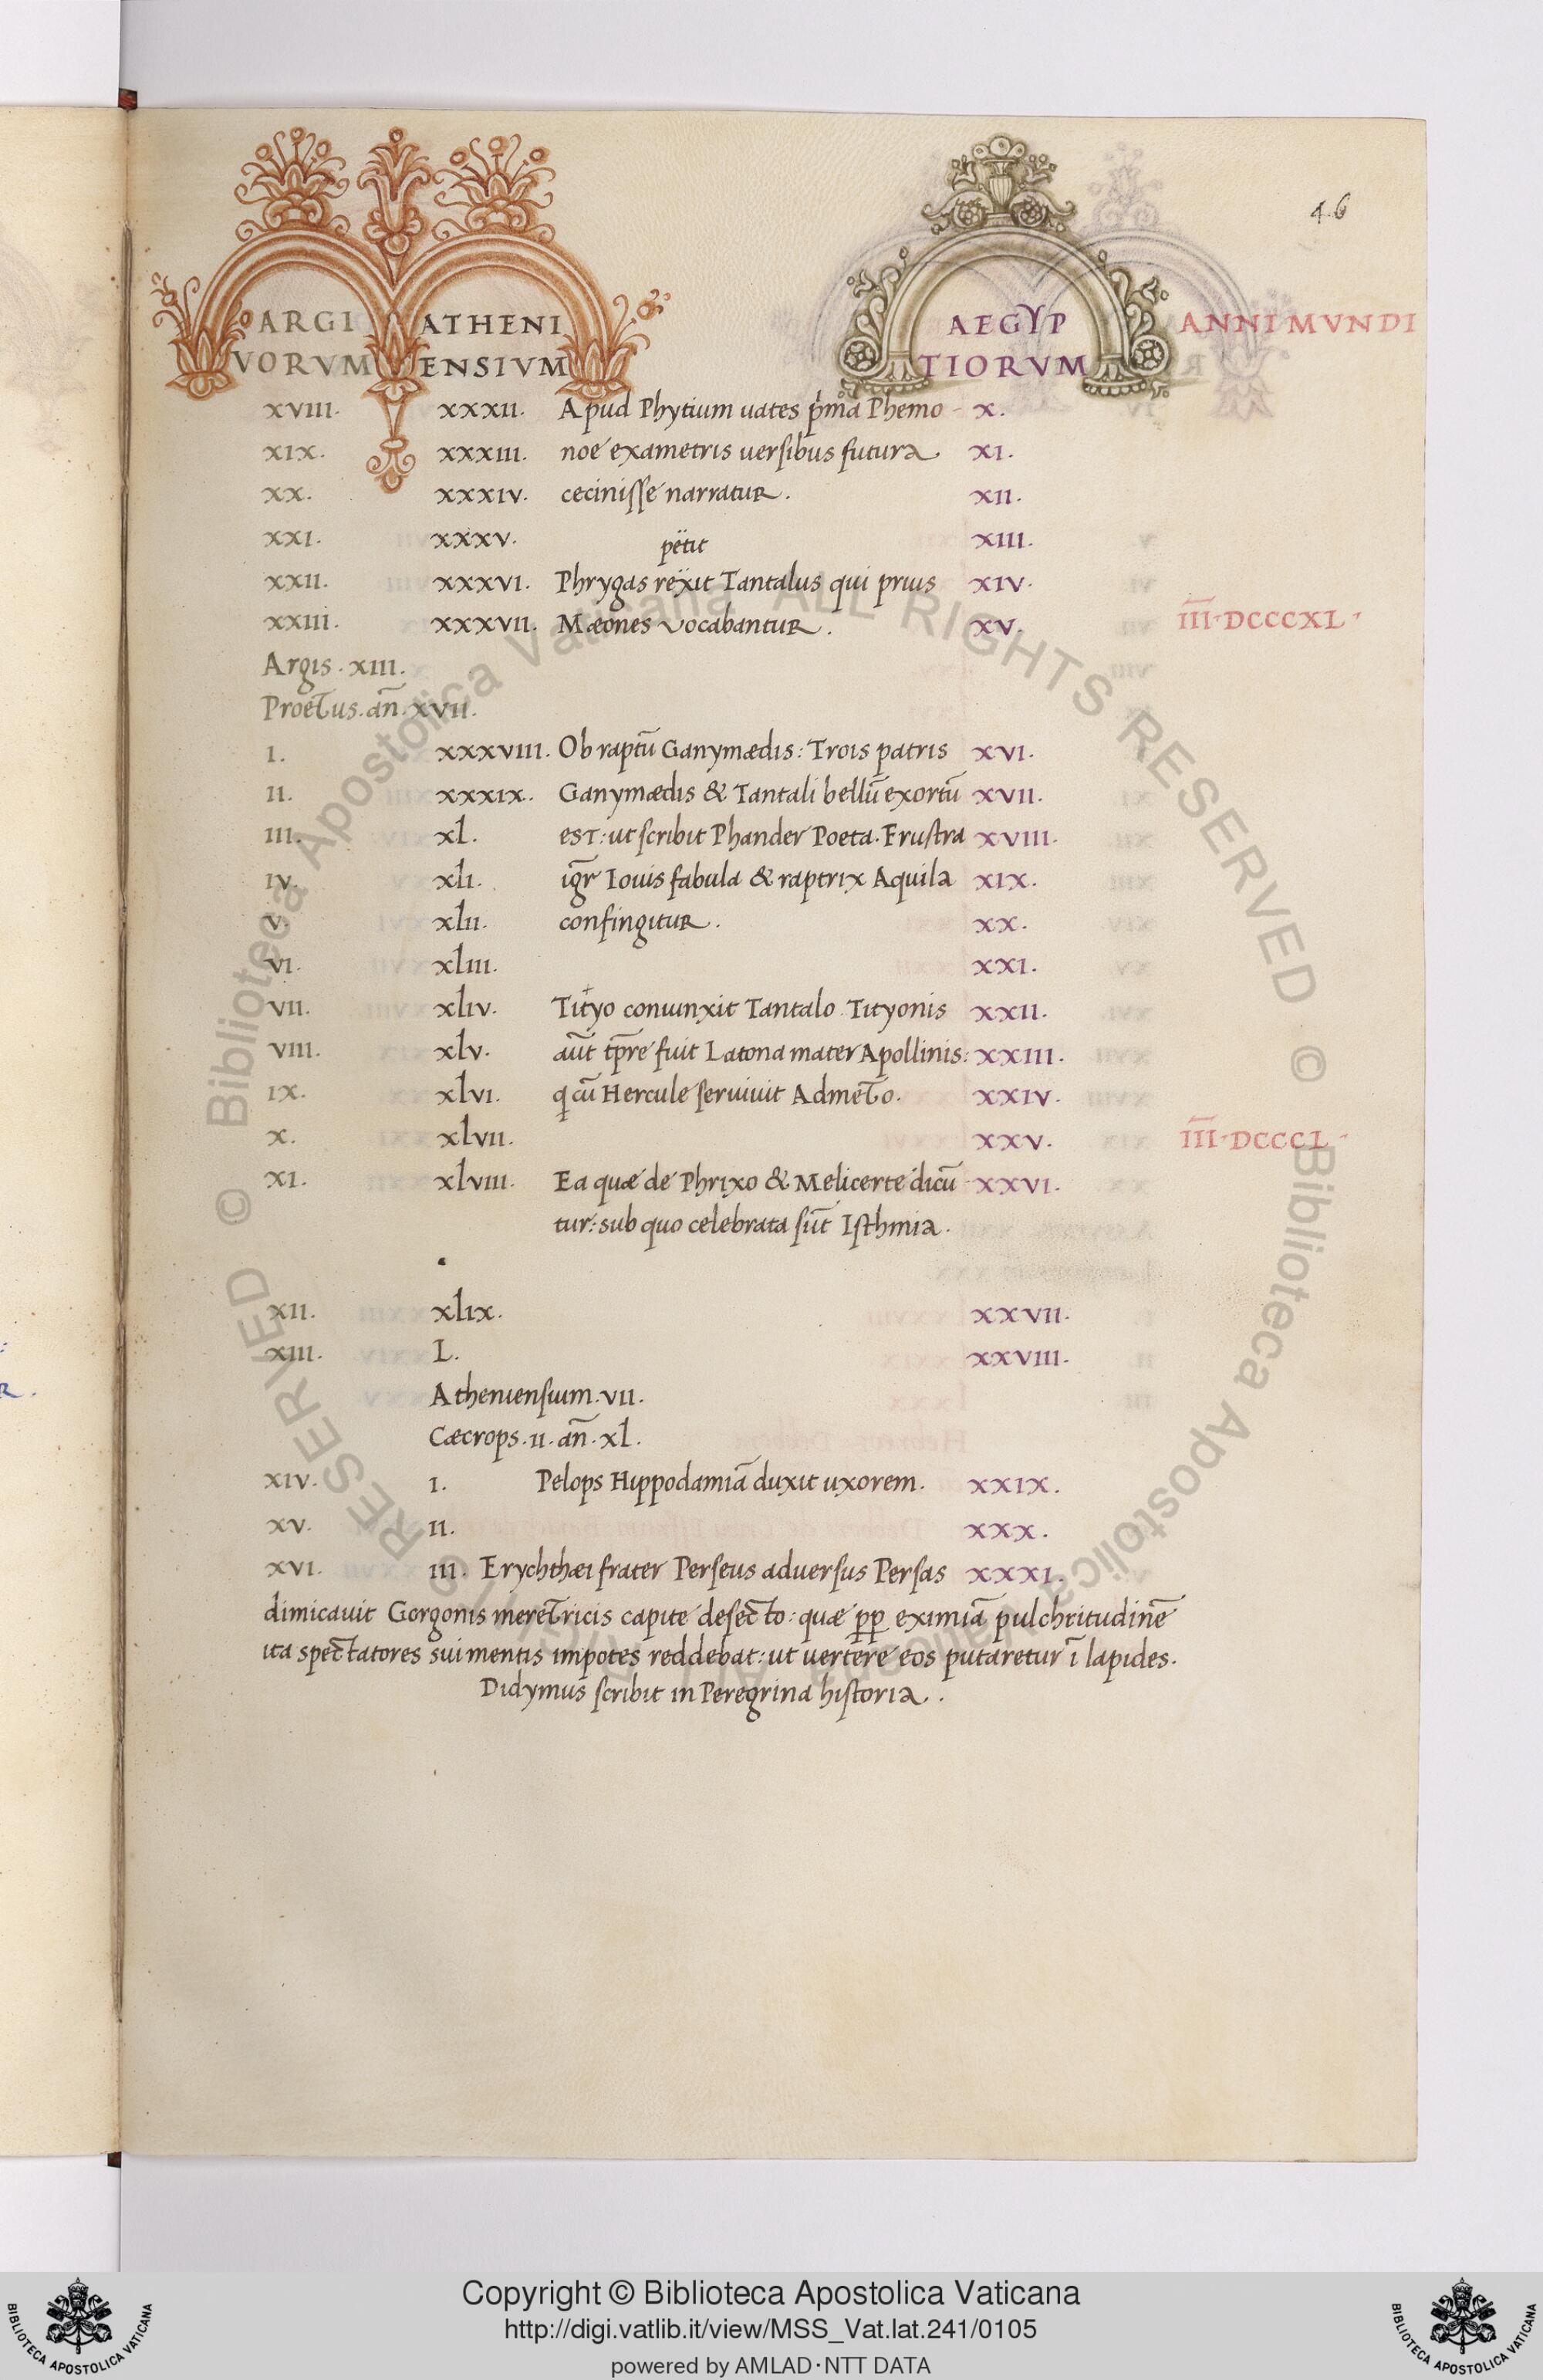 46
ARGI ATHENI AEGYP ANNI MVNDI
VORVM ENSIVM TIORVM
XVIII. XXXII. Apud Phytium uates p̄ma Phemo- X.
XIX. XXXIII. noe exametris uersibus futura XI.
XX. XXXIV. cecinisse narratur. XII.
XXI. XXXV. petit XIII.
XXII. XXXVI. Phrygas rexit Tantalus qui prius XIV.
XXIII. XXXVII. Mæones vocabantur. XV. I̅I̅I̅·DCCCXL·
Argis. XIII.
Proetus. an̄. XVII.
I. XXXVIII. Ob raptū Ganymædis: Trois patris XVI.
II. XXXIX. Ganymædis & Tantali bellū exortū XVII.
III. xl. est: ut scribit Phander Poeta. Frustra XVIII.
IV. xli. igr̄ Iouis fabula & raptrix Aquila XIX.
V. xlii. confingitur. XX.
VI. xliii. XXI.
VII. xliv. Tityo coniunxit Tantalo Tityonis XXII.
VIII. xlv. aūt tp̄re fuit Latona mater Apollinis: XXIII.
IX. xlvi. q cū Hercule seruiuit Admeto. XXIV.
X. xlvii. XXV. I̅I̅I̅·DCCCL·
XI. xlviii. Ea quæ de Phrixo & Melicerte dicū- XXVI.
tur: sub quo celebrata sūt Isthmia.
XII. xlix. XXVII.
XIII. L. XXVIII.
Atheniensium. VII.
Cæcrops. II. an̄. xl.
XIV. I. Pelops Hippodamiā duxit uxorem. XXIX.
XV. II. XXX.
XVI. III. Erychthæi frater Perseus aduersus Persas XXXI.
dimicauit Gorgonis meretricis capite desecto: quæ p̱p̱ eximiā pulchritudinē
ita spectatores sui mentis impotes reddebat: ut uertere eos putaretur ī lapides.
Didymus scribit in Peregrina historia.
© Biblioteca Apostolica Vaticana ALL RIGHTS RESERVED © Biblioteca Apostolica Vaticana ALL RIGHTS RESERVED
Copyright © Biblioteca Apostolica Vaticana
http://digi.vatlib.it/view/MSS_Vat.lat.241/0105
powered by AMLAD·NTT DATA
BIBLIOTECA APOSTOLICA VATICANA
BIBLIOTECA APOSTOLICA VATICANA